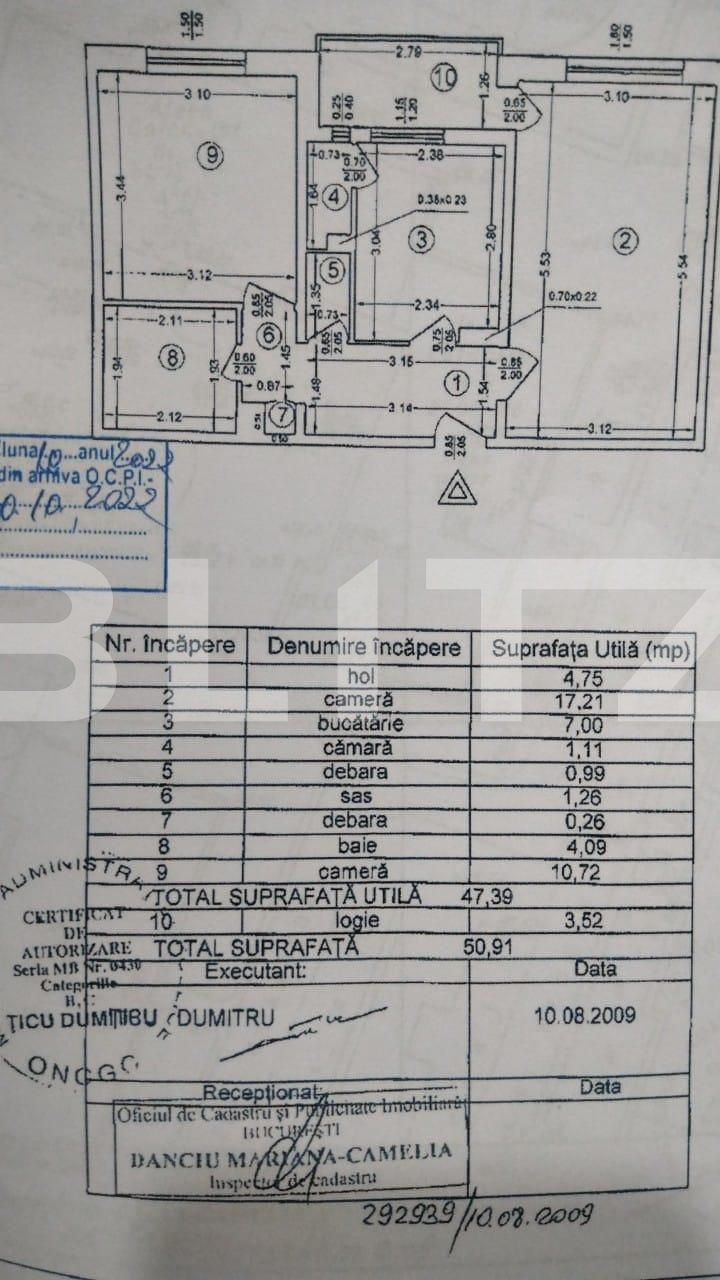 1.50
1.50
1.80
1.50
2.79
10
1.26
3.10
0.25
0.40
1.15
1.20
0.65
2.00
3.10
9
0.73
0.70
2.00
2.38
3.44
1.64
4
0.38x0.23
3.04
3
2.80
2
5.53
5.54
3.12
5
1.35
2.34
0.70x0.22
0.73
0.85
2.05
2.11
6
8
1.94
1.93
0.60
2.00
1.45
0.65
2.05
0.75
2.05
3.15
0.85
2.00
0.87
1.48
1
1.54
2.12
7
3.14
3.12
0.85
2.05
luna 10 anul 2022
din arhiva O.C.P.I.-
BLITZ
Nr. încăpere Denumire încăpere Suprafața Utilă (mp)
1 hol 4,75
2 cameră 17,21
3 bucătărie 7,00
4 cămară 1,11
5 debara 0,99
6 sas 1,26
7 debara 0,26
8 baie 4,09
9 cameră 10,72
TOTAL SUPRAFAȚĂ UTILĂ 47,39
10 logie 3,52
TOTAL SUPRAFAȚĂ 50,91
CERTIFICAT
DE
AUTORIZARE
Seria MB Nr. 0430
Categoriile
B, C
Executant: Data
DUMITRU
10.08.2009
Recepționat: Data
Oficiul de Cadastru și Publicitate Imobiliară
BUCUREȘTI
DANCIU MARIANA-CAMELIA
Inspector de cadastru
292939/10.08.2009